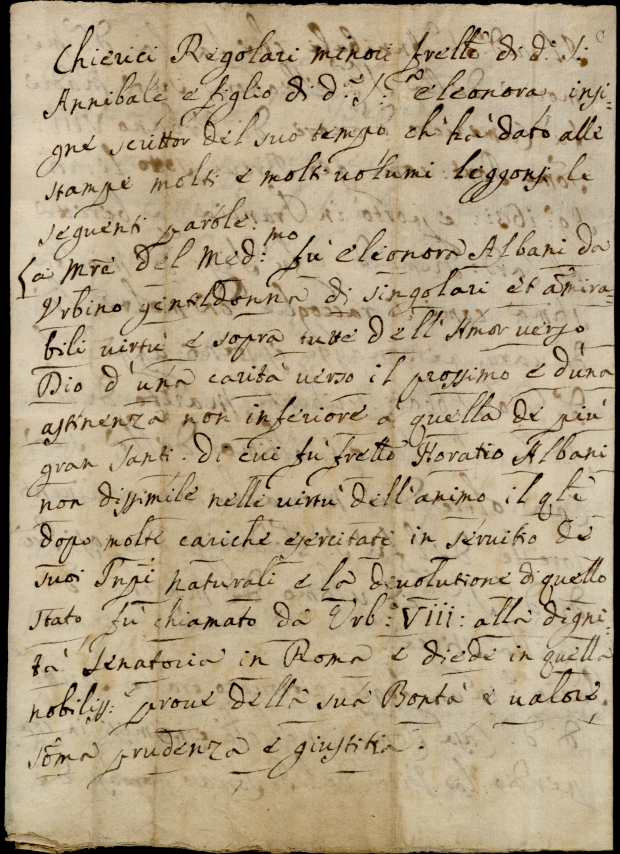 Chierici Regolari minori frello di d.º S.r
Annibale e figlio di d.ª S.ra eleonora insi-
gne scrittor del suo tempo, ch'hà dato alle
stampe molti e molti uolumi leggonsi le
seguenti parole.
La Mre del Med.mo fù eleonora Albani da
Vrbino gentildonna di singolari et amira-
bili virtù e sopra tutte dell'Amor verso
Dio d'una carità verso il prossimo e d'una
astinenza non inferiore a quella de più
gran Santi. di cui fù frello Horatio Albani
non dissimile nelle virtù dell'animo il qle
dopo molte cariche esercitate in seruitio de
suoi Pnpi naturali e la deuolutione di quello
stato fù chiamato da Vrb.º VIII: alla digni-
tà Senatoria in Roma e diede in quella
nobiliss.ª proue della sua Bontà e ualore,
soma prudenza e giustitia.